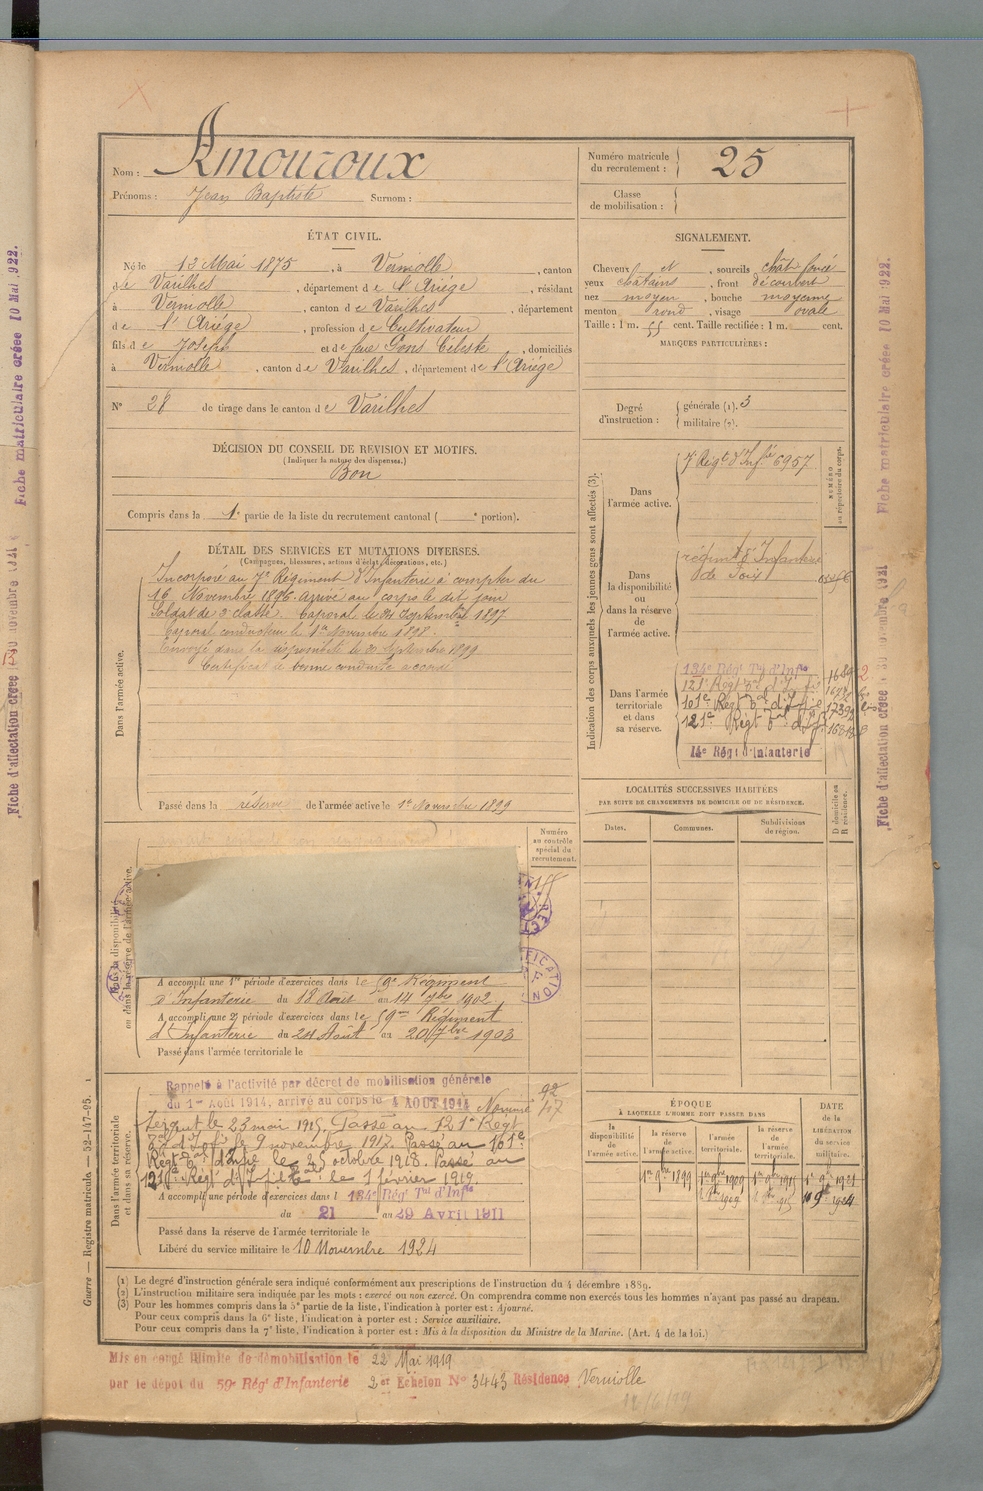 Nom : Amouroux
Prénoms : Jean Baptiste Surnom :
Numéro matricule du recrutement : 25
Classe de mobilisation :
ÉTAT CIVIL.
Né le 12 Mai 1875, à Verniolle, canton
de Varilhes, département de l'Ariége, résidant
à Verniolle, canton de Varilhes, département
de l'Ariége, profession de Cultivateur
fils de Joseph et de feue Pons Céleste, domiciliés
à Verniolle, canton de Varilhes, département de l'Ariége
N° 28 de tirage dans le canton de Varilhes
SIGNALEMENT.
Cheveux et, sourcils chât. foncé
yeux châtains, front découvert
nez moyen, bouche moyenne
menton rond, visage ovale
Taille : 1 m. 55 cent. Taille rectifiée : 1 m. cent.
MARQUES PARTICULIÈRES :
Degré d'instruction : générale (1). 3
militaire (2).
DÉCISION DU CONSEIL DE REVISION ET MOTIFS.
(Indiquer la nature des dispenses.)
Bon
Compris dans la 1e partie de la liste du recrutement cantonal ( e portion).
DÉTAIL DES SERVICES ET MUTATIONS DIVERSES.
(Campagnes, blessures, actions d'éclat, décorations, etc.)
Dans l'armée active.
Incorporé au 7e Régiment d'Infanterie à compter du
16 Novembre 1896. Arrivé au corps le dit jour
Soldat de 2e classe. Caporal le 24 Septembre 1897
Caporal conducteur le 1er Novembre 1898.
Envoyé dans la disponibilité le 20 Septembre 1899
Certificat de bonne conduite accordé
Passé dans la réserve de l'armée active le 1er Novembre 1899
Indication des corps auxquels les jeunes gens sont affectés (3).
Dans l'armée active.
7e Régt d'Infie 6957
NUMÉRO au répertoire du corps.
Dans la disponibilité ou dans la réserve de l'armée active.
régiment d'Infanterie
de Foix
Dans l'armée territoriale et dans sa réserve.
134e Régt Tal d'Infie
121e Régt Tal d'Infie
101e Régt Tal d'Infie
121e Régt Tal d'Infie
14e Régt d'Infanterie
LOCALITÉS SUCCESSIVES HABITÉES
PAR SUITE DE CHANGEMENTS DE DOMICILE OU DE RÉSIDENCE.
Dates. Communes. Subdivisions de région. D domicile ou R résidence.
Numéro au contrôle spécial du recrutement.
Dans la disponibilité ou dans la réserve de l'armée active.
A accompli une 1re période d'exercices dans le 59e Régiment
d'Infanterie du 18 Août au 14 7bre 1902
A accompli une 2e période d'exercices dans le 59me Régiment
d'Infanterie du 24 Août au 20 7bre 1903
Passé dans l'armée territoriale le
Dans l'armée territoriale et dans sa réserve.
Rappelé à l'activité par décret de mobilisation générale
du 1er Août 1914, arrivé au corps le 4 AOUT 1914 Nommé
Sergent le 23 mai 1915. Passé au 121e Régt
Tal d'Infie le 9 novembre 1917. Passé au 101e
Régt Tal d'Infie le 25 octobre 1918. Passé au
121e Régt Tal d'Infie le 1 février 1919.
A accompli une période d'exercices dans l 134e Régt Tal d'Infie
du 21 au 29 Avril 1911
Passé dans la réserve de l'armée territoriale le
Libéré du service militaire le 10 Novembre 1924
ÉPOQUE
À LAQUELLE L'HOMME DOIT PASSER DANS
la disponibilité de l'armée active.
la réserve de l'armée active. 1er 9bre 1899
l'armée territoriale. 1er 9bre 1909
la réserve de l'armée territoriale.
DATE de la LIBÉRATION du service militaire.
(1) Le degré d'instruction générale sera indiqué conformément aux prescriptions de l'instruction du 4 décembre 1889.
(2) L'instruction militaire sera indiquée par les mots : exercé ou non exercé. On comprendra comme non exercés tous les hommes n'ayant pas passé au drapeau.
(3) Pour les hommes compris dans la 5e partie de la liste, l'indication à porter est : Ajourné.
Pour ceux compris dans la 6e liste, l'indication à porter est : Service auxiliaire.
Pour ceux compris dans la 7e liste, l'indication à porter est : Mis à la disposition du Ministre de la Marine. (Art. 4 de la loi.)
Mis en congé illimité de démobilisation le 22 Mai 1919
par le dépot du 59e Régt d'Infanterie 2e Echelon N° 3443 Résidence Verniolle
Guerre — Registre matricule. — 52-147-95.
Fiche matriculaire créée 10 Mai 1922.
Fiche d'affectation créée 30 novembre 1921
Fiche matriculaire créée 10 Mai 1922.
Fiche d'affectation créée 30 novembre 1921